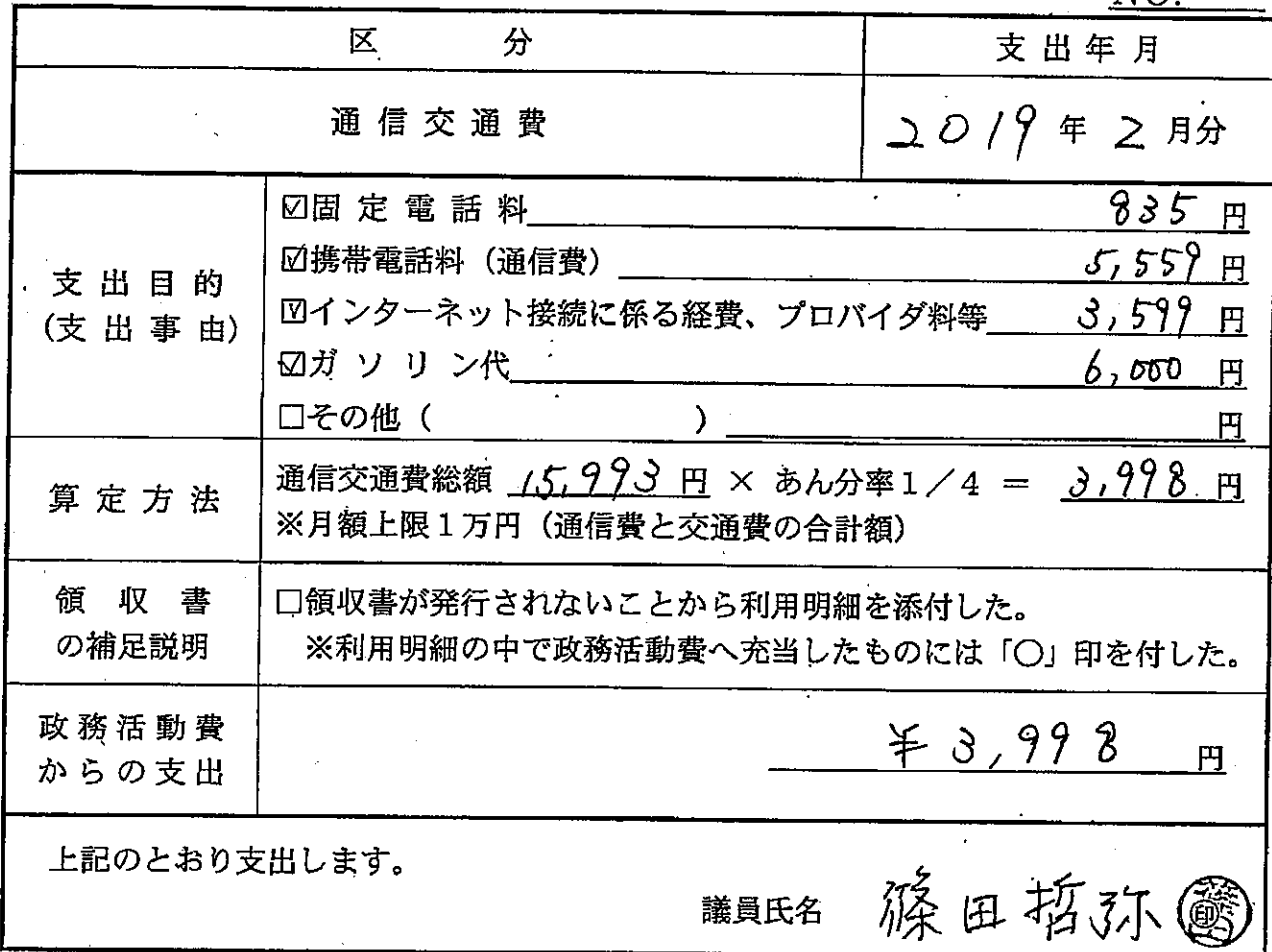 NO.
区分 支出年月
通信交通費 2019年2月分
支出目的
(支出事由)
☑固定電話料 835円
☑携帯電話料（通信費） 5,559円
☑インターネット接続に係る経費、プロバイダ料等 3,599円
☑ガソリン代 6,000円
□その他（ ） 円
算定方法
通信交通費総額 15,993円 × あん分率1／4 ＝ 3,998円
※月額上限1万円（通信費と交通費の合計額）
領収書
の補足説明
□領収書が発行されないことから利用明細を添付した。
※利用明細の中で政務活動費へ充当したものには「〇」印を付した。
政務活動費
からの支出
¥3,998円
上記のとおり支出します。
議員氏名 篠田哲弥 印